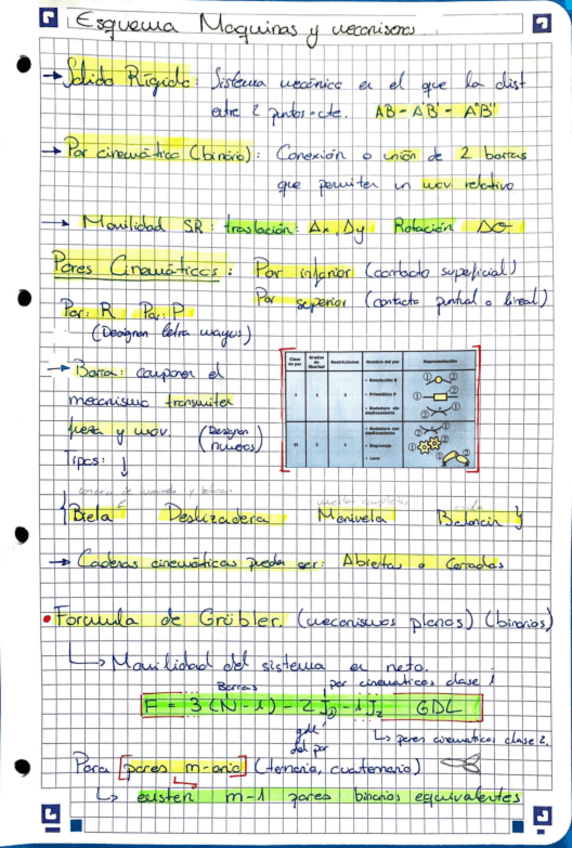 Esquema Maquinas y mecanismos
→ Sólido Rígido: Sistema mecánico en el que la dist
entre 2 puntos = cte. AB = A'B' = A''B''
→ Par cinemático (binario): Conexión o unión de 2 barras
que permiten un mov relativo
→ Movilidad SR: traslación: Δx, Δy Rotación Δθ
Pares Cinemáticos: Par inferior (contacto superficial)
Par superior (contacto puntual o lineal)
Par: R Par: P
(Designan letra mayus)
→ Barra: componen el
mecanismo transmiten
fuerza y mov (Designan
números)
Tipos: ↓
Clase de par Grados de libertad Restricciones Nombre del par Representación
I 1 2
• Revolución R ① ②
• Prismático P ① ②
• Rodadura sin deslizamiento ② ①
II 2 1
• Rodadura con deslizamiento ② ①
• Engranaje ① ②
• Leva ① ②
{Biela Deslizadera Manivela Balancín}
→ Cadenas cinemáticas pueden ser: Abiertas o Cerradas
• Formula de Grübler. (mecanismos planos) (binarios)
↳ Movilidad del sistema en neto.
Barras par cinematicos clase 1
F = 3(N-1) - 2J₁ - 1J₂ GDL
gdl
del par ↳ pares cinematicos clase 2.
Para [pares m-ario] (ternario, cuaternario)
↳ existen m-1 pares binarios equivalentes